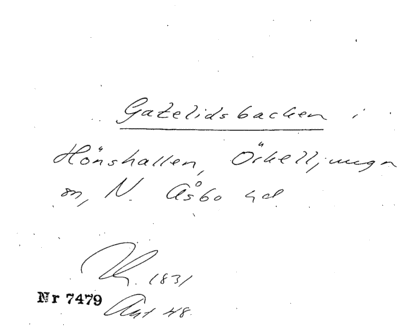 Gatelidsbacken i
Hönshallen, Örkelljunga
sn, N. Åsbo hd
1831
Nr 7479